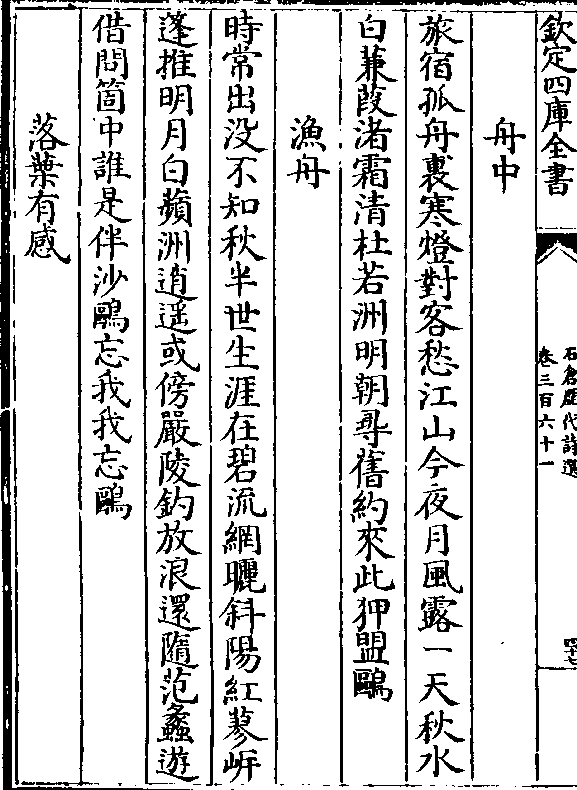 欽定四庫全書
石倉歷代詩選
卷三百六十一
四十七
舟中
旅宿孤舟裏寒燈對客愁江山今夜月風露一天秋水
白蒹葭渚霜清杜若洲明朝尋舊約來此狎盟鷗
漁舟
時常出没不知秋半世生涯在碧流網曬斜陽紅蓼㟁
蓬推明月白蘋洲逍遥或傍嚴陵釣放浪還隨范蠡遊
借問箇中誰是伴沙鷗忘我我忘鷗
落葉有感